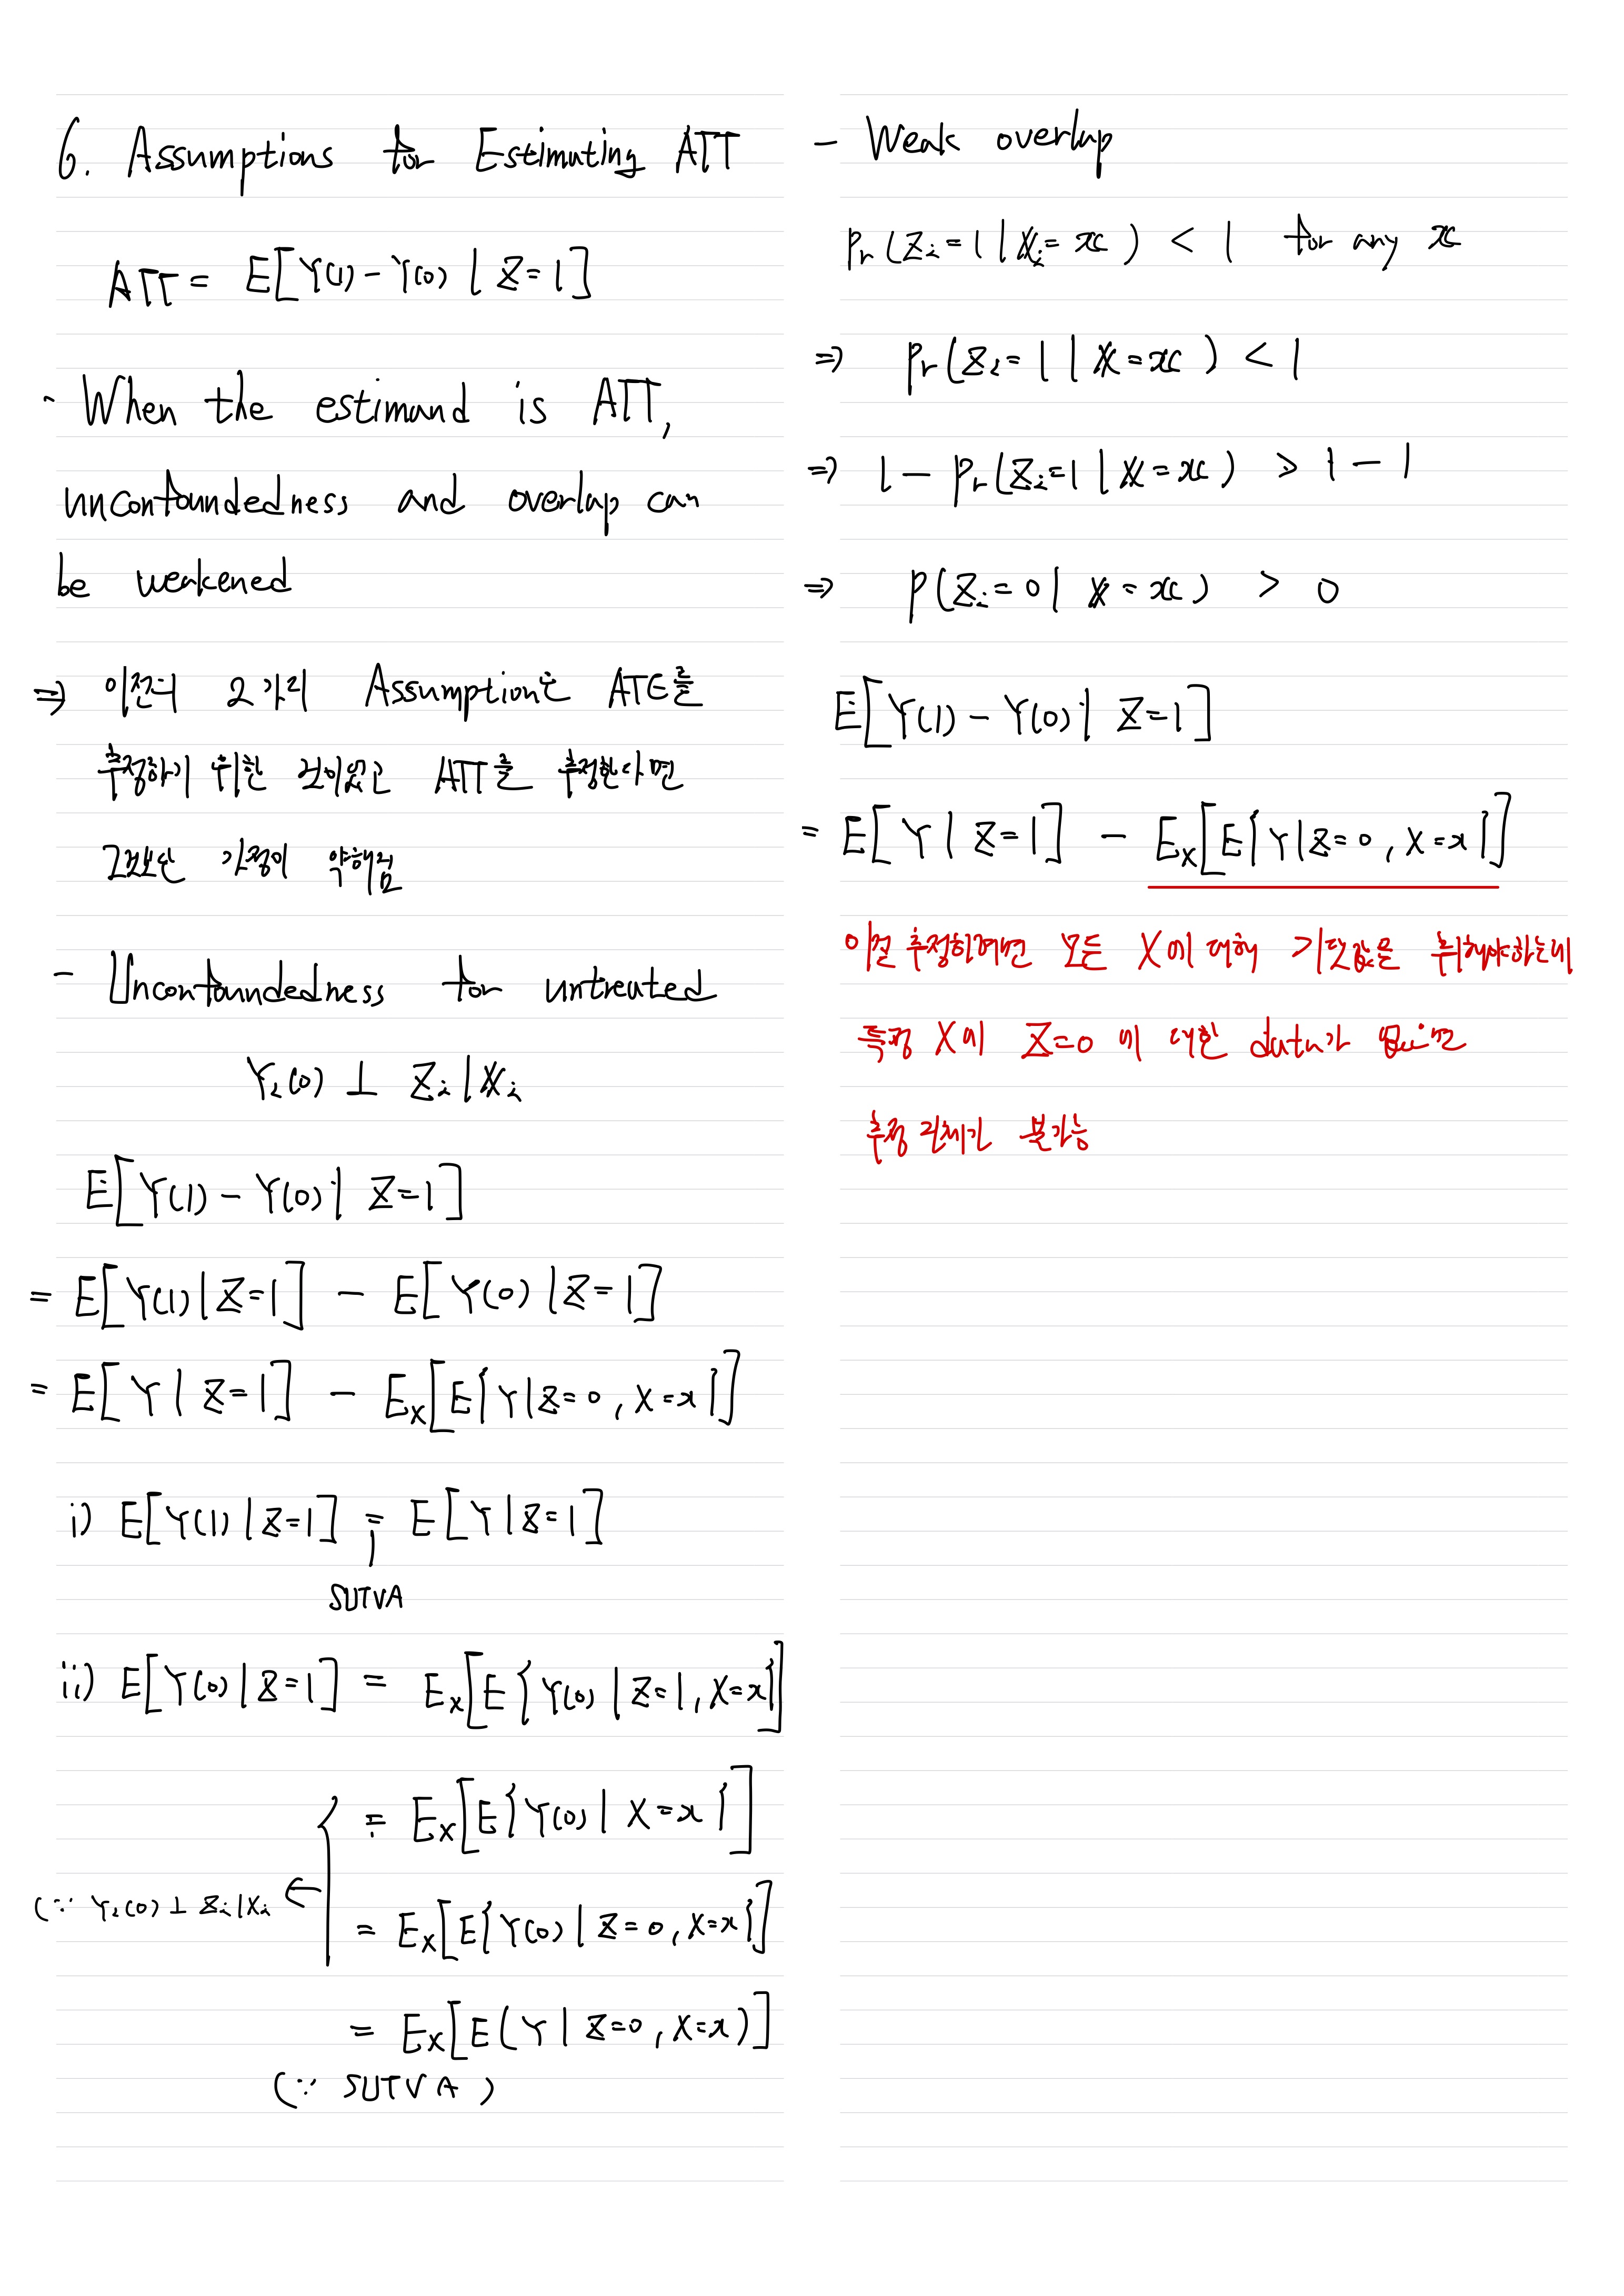 6. Assumptions for Estimating ATT
ATT = E[Y(1) - Y(0) | Z=1]
- When the estimand is ATT,
unconfoundedness and overlap can
be weakened
⇒ 이전의 2가지 Assumption은 ATE를
추정하기 위한 것이었고 ATT를 추정한다면
그것보단 가정이 약해짐
- Unconfoundedness for untreated
Y_i(0) ⊥ Z_i | X_i
E[Y(1) - Y(0) | Z=1]
= E[Y(1) | Z=1] - E[Y(0) | Z=1]
= E[Y | Z=1] - E_X[E{Y | Z=0, X=x}]
i) E[Y(1) | Z=1] = E[Y | Z=1]
SUTVA
ii) E[Y(0) | Z=1] = E_X[E{Y(0) | Z=1, X=x}]
= E_X[E{Y(0) | X=x}]
(∵ Y_i(0) ⊥ Z_i | X_i ←
= E_X[E{Y(0) | Z=0, X=x}]
= E_X[E(Y | Z=0, X=x)]
(∵ SUTVA)
- Weak overlap
Pr(Z_i=1 | X_i=x) < 1 for any x
⇒ Pr(Z_i=1 | X=x) < 1
⇒ 1 - Pr(Z_i=1 | X=x) > 1 - 1
⇒ P(Z_i=0 | X=x) > 0
E[Y(1) - Y(0) | Z=1]
= E[Y | Z=1] - E_X[E{Y | Z=0, X=x}]
이걸 추정하려면 모든 X에 대해 기댓값을 취해야하는데
특정 X에 Z=0에 대한 data가 없으면
추정 자체가 불가능